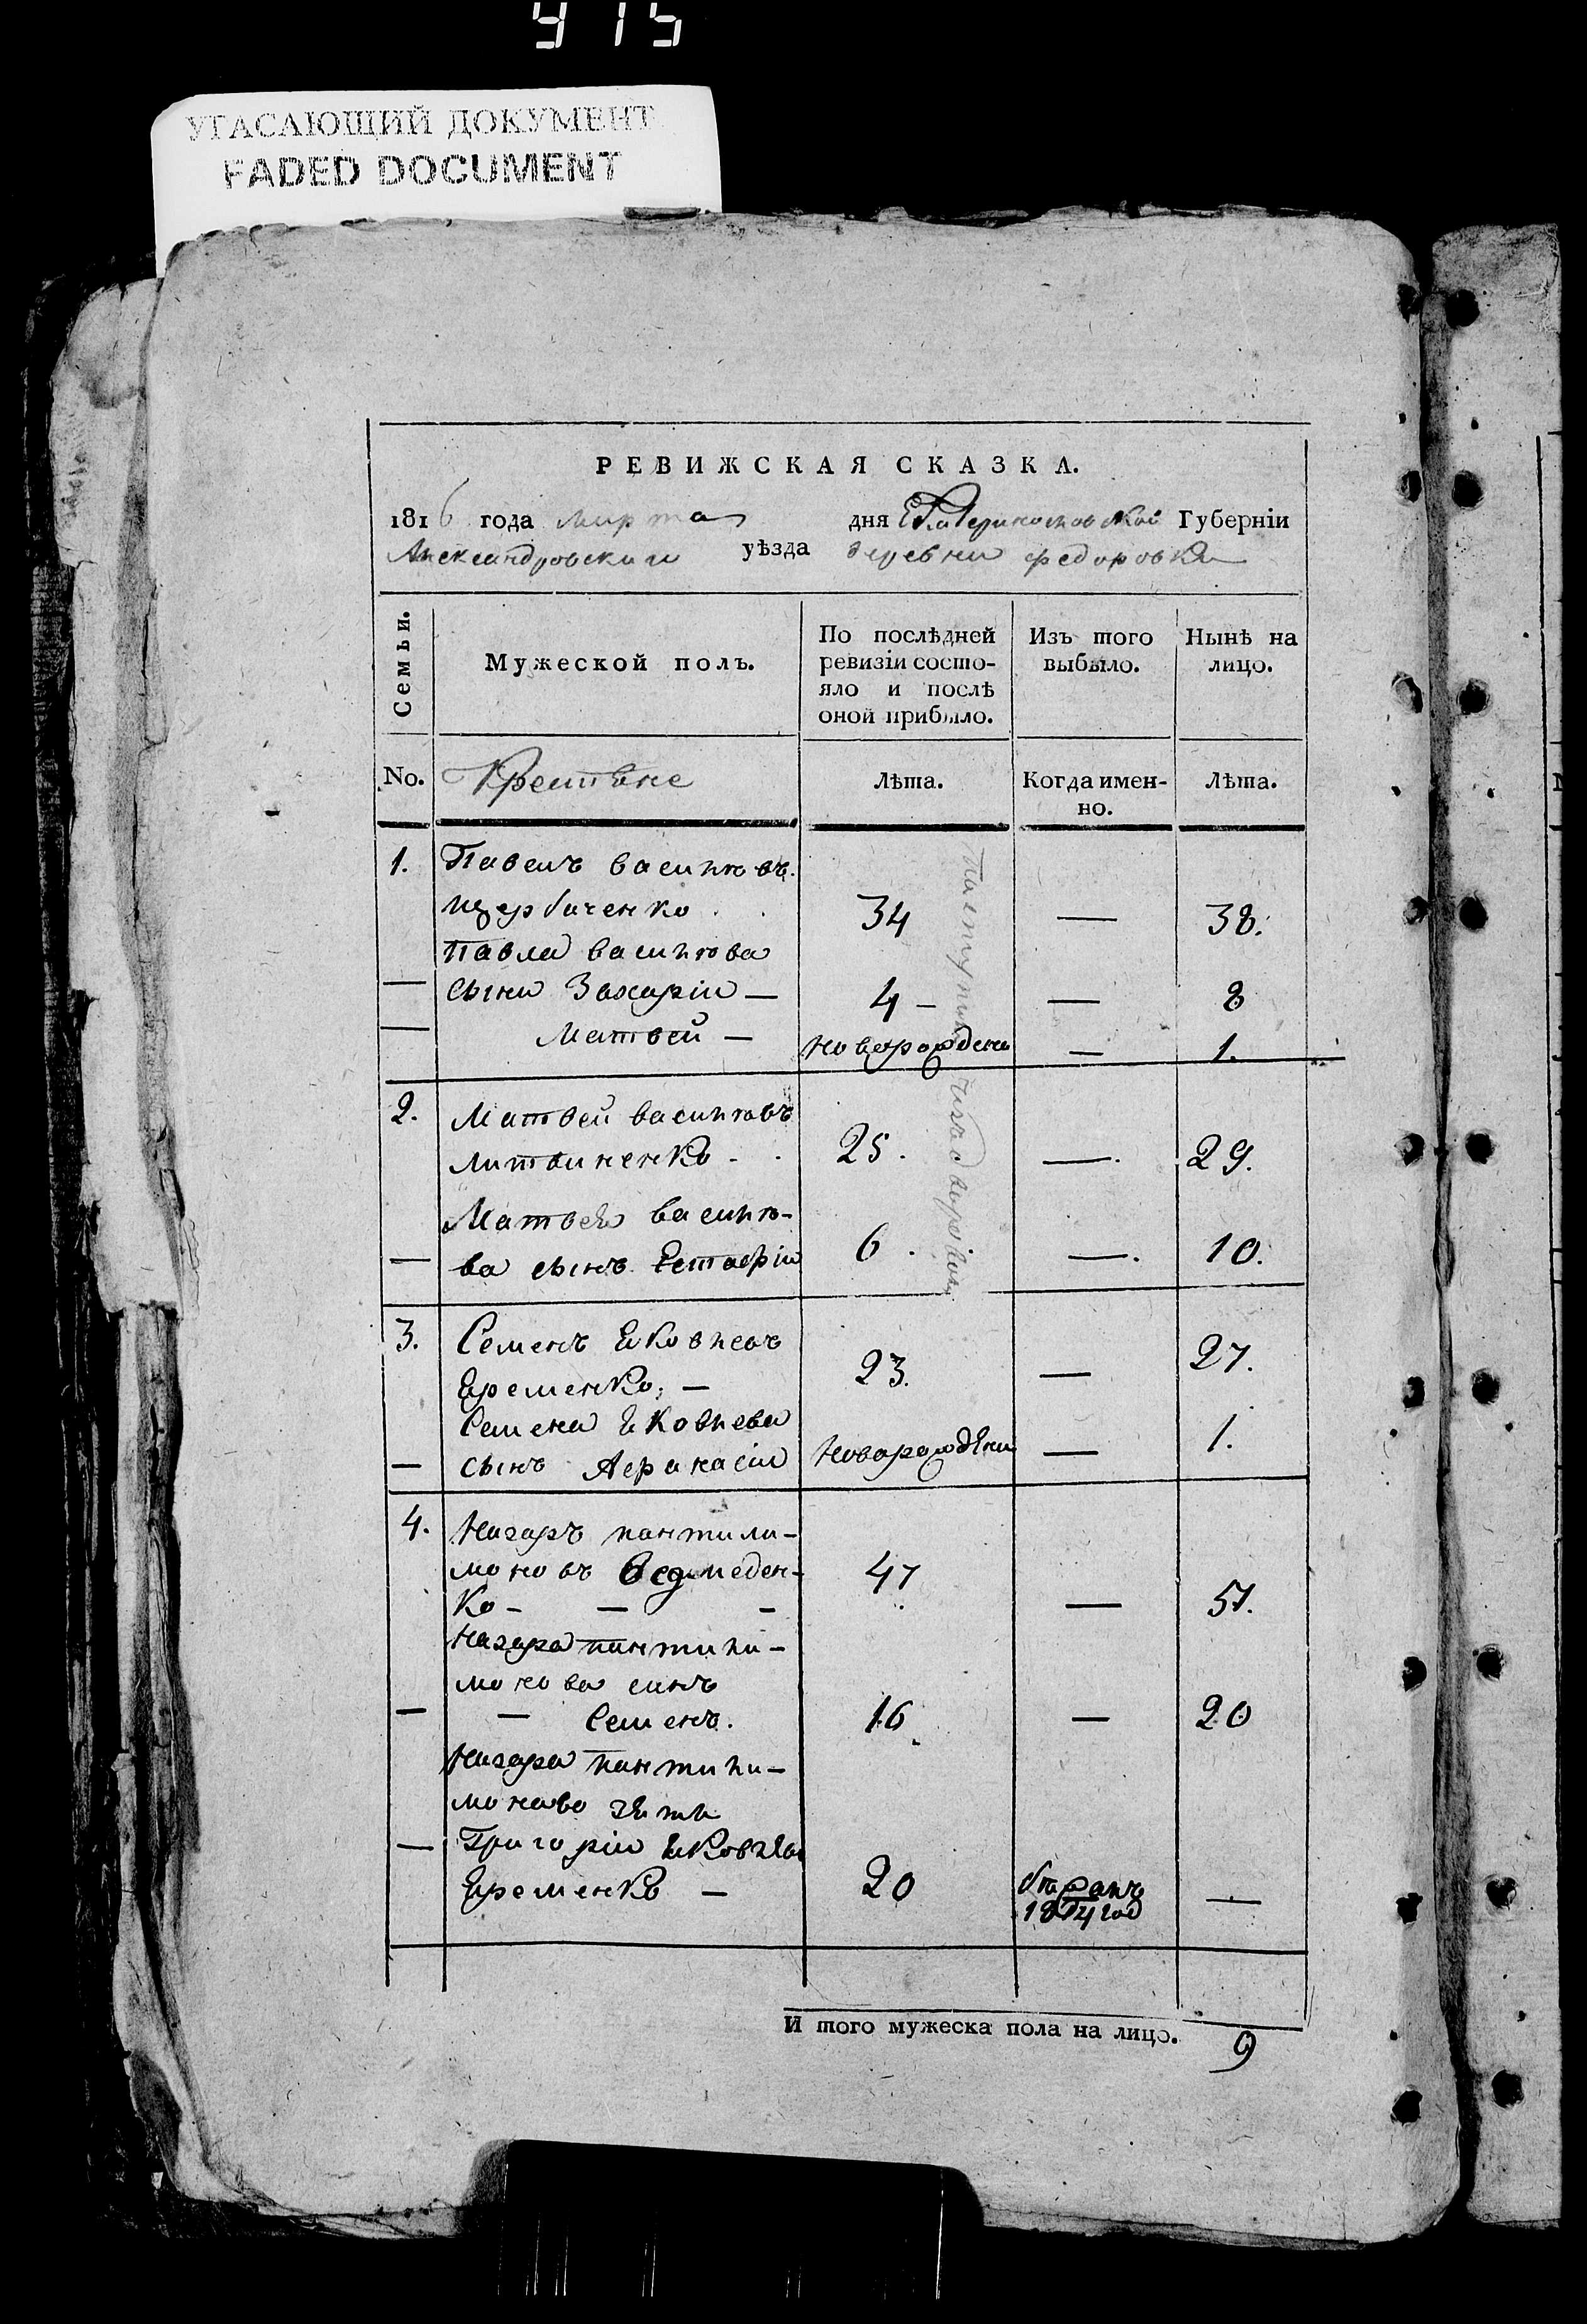 915
УГАСАЮЩИЙ ДОКУМЕНТ
FADED DOCUMENT
РЕВИЖСКАЯ СКАЗКА.
1816 года марта дня Екатеринославской Губерніи
Александровскаго уѣзда деревни федоровки
Семьи.
Мужеской полъ.
По послѣдней ревизіи состо-
яло и послѣ
оной прибыло.
Изъ того
выбыло.
Нынѣ на
лицо.
No. Крестяне Лѣта. Когда имен-
но. Лѣта.
1. Павелъ васильевъ.
щербаченко 34 — 38.
Павла васильева
— сыни Захарій — 4 — — 8
— Матвей — новорожденъ — 1.
2. Матвей васильевъ
литвиненко 25. — 29.
Матвея василье-
— ва сынъ Естафій 6. — 10.
3. Семенъ яковлевъ
Еременко; — 23. — 27.
Семена яковлева
— сынъ Афанасій новорожденъ — 1.
4. Назаръ пантили-
моновъ Ведмеден-
ко — — — 47 — 51.
Назара пантили-
монова синъ
— — Семенъ. 16 — 20
Назара пантили-
монова зять
— Григорій яковлевъ
Еременко — 20 1814 год —
И того мужеска пола на лицо. 9